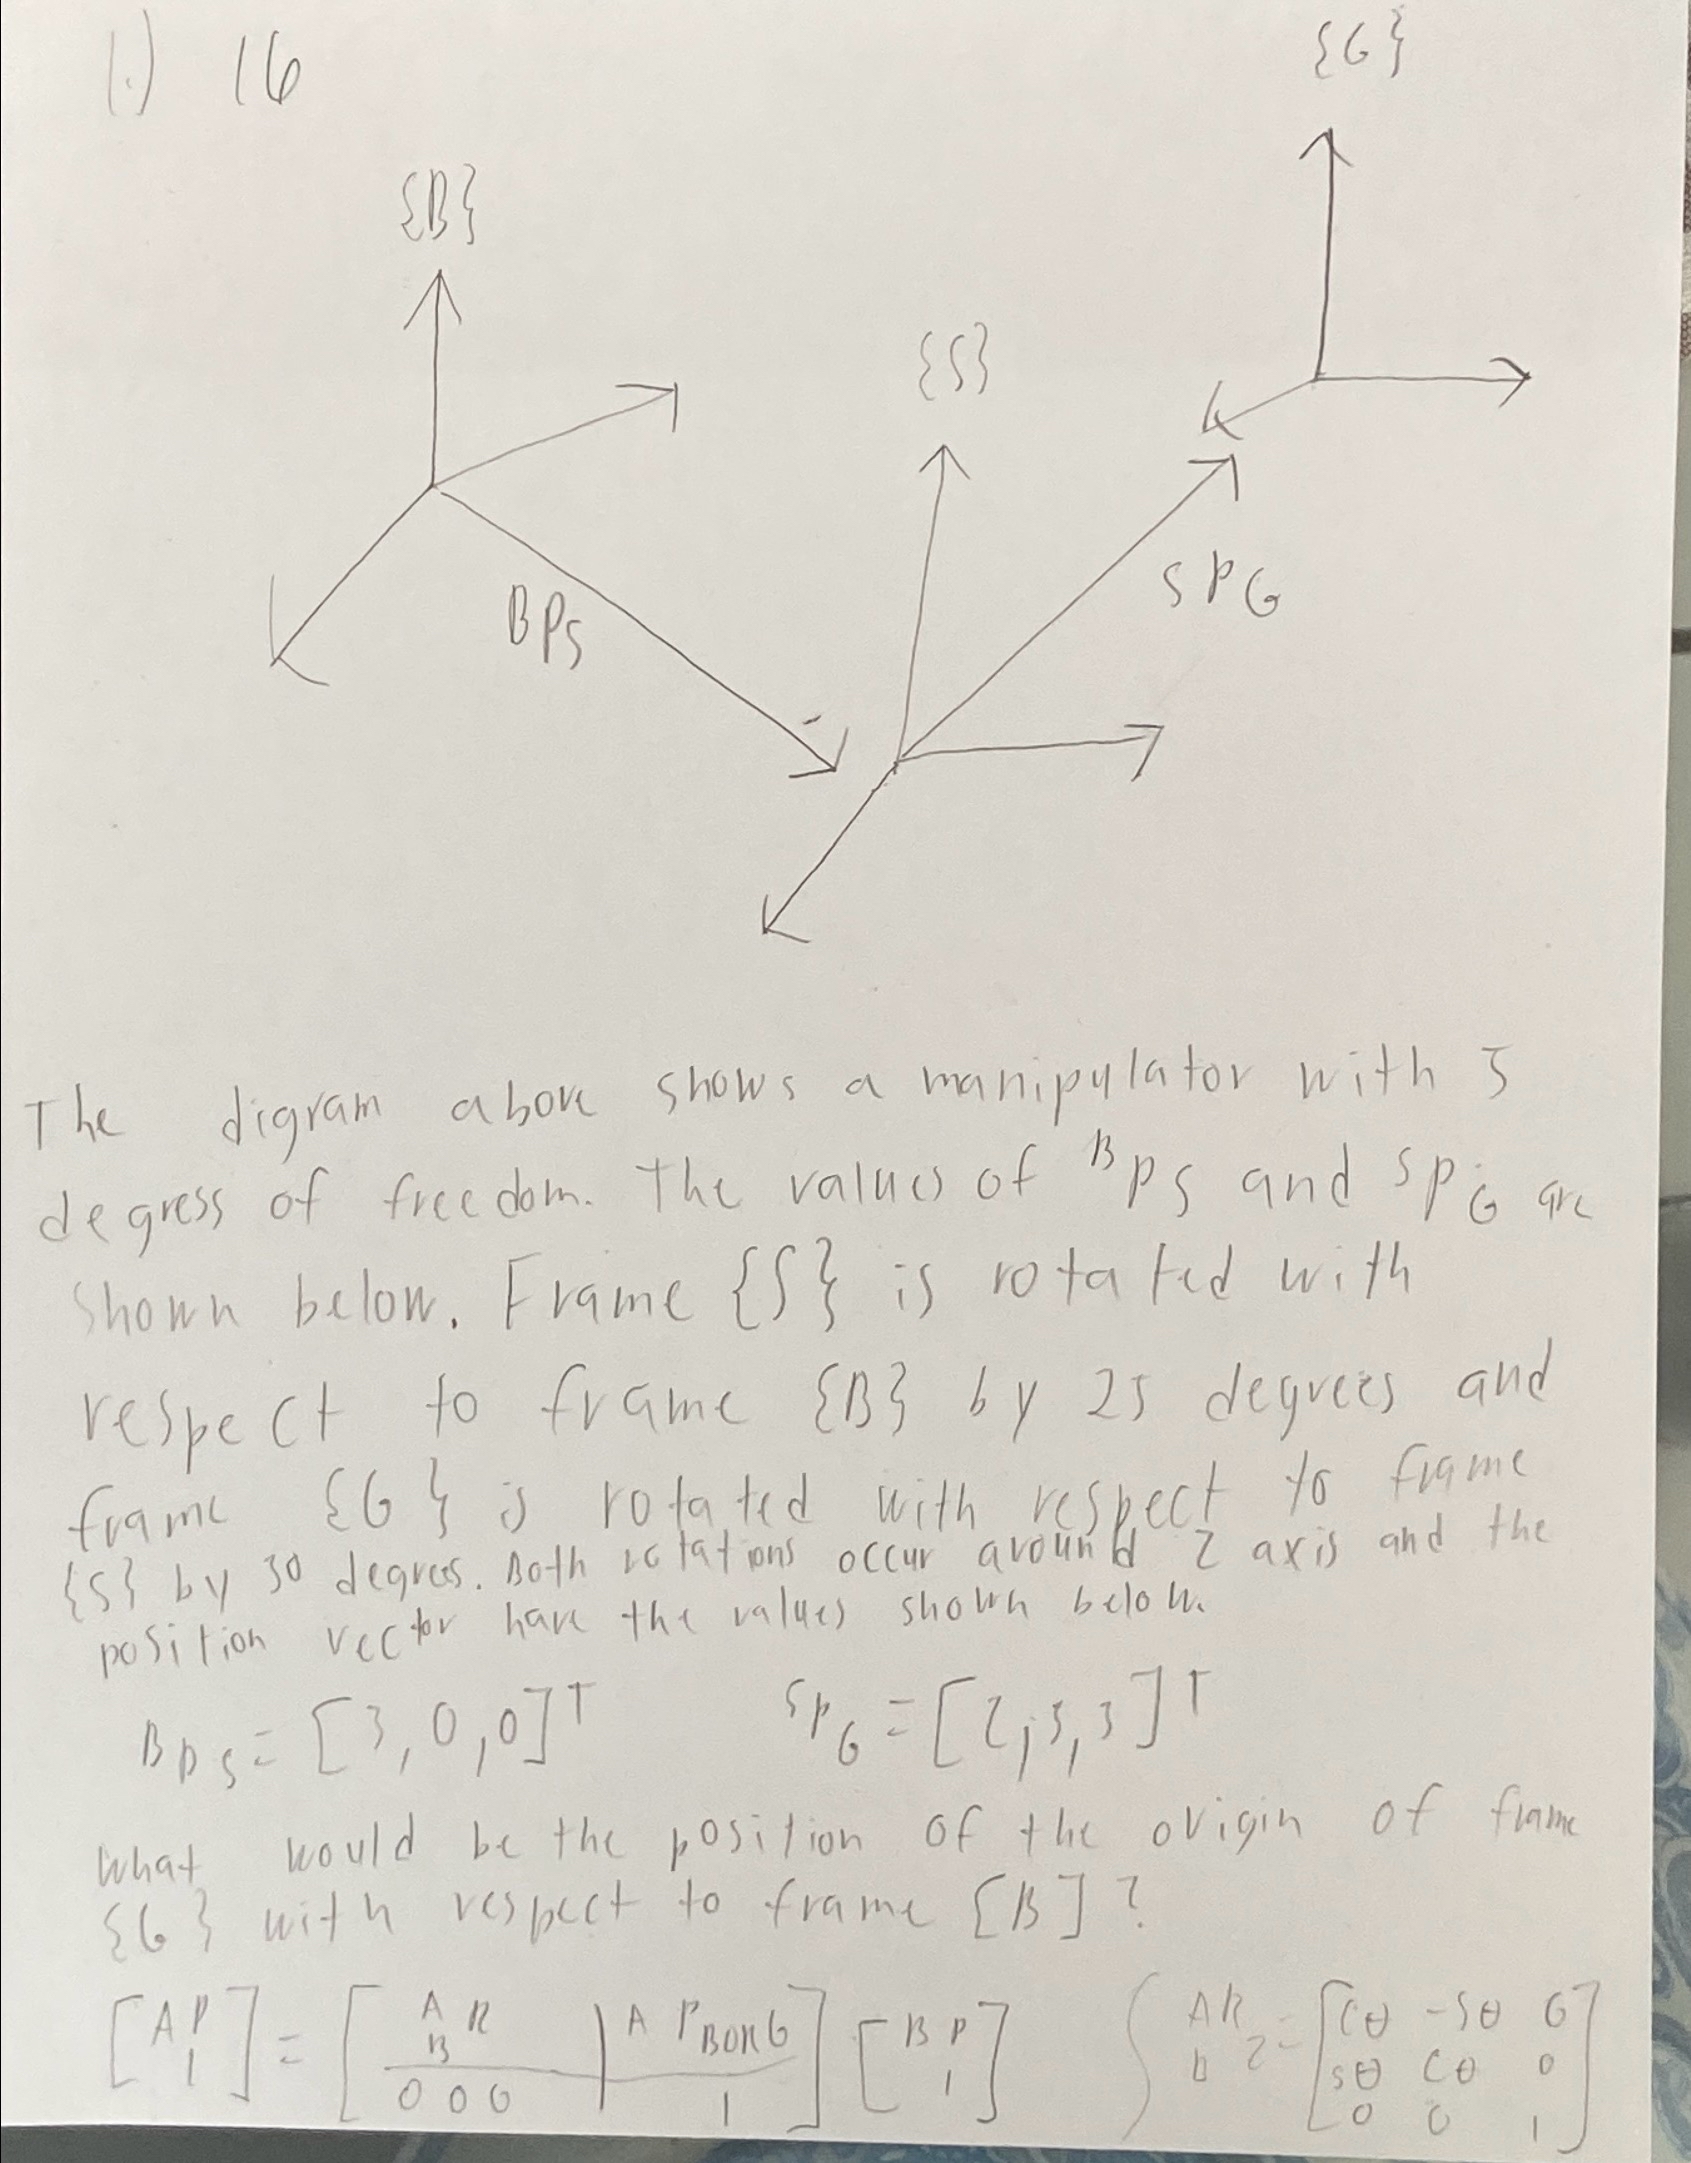 1.) 16
{G}
{B}
{S}
BPS
SPG
The digram above shows a manipulator with 5
degress of freedom. The values of ᴮPS and ˢPG are
shown below. Frame {S} is rotated with
respect to frame {B} by 25 degrees and
frame {G} is rotated with respect to frame
{S} by 30 degrees. Both rotations occur around Z axis and the
position vector have the values shown below.
BPS = [3,0,0]ᵀ ˢPG = [2, 3]ᵀ
What would be the position of the origin of frame
{G} with respect to frame [B]?
[AP 1] = [A B R | A PBORG 0 0 0 | 1] [BP 1] AR Z = [Cθ -Sθ 0 Sθ Cθ 0 0 0 1]